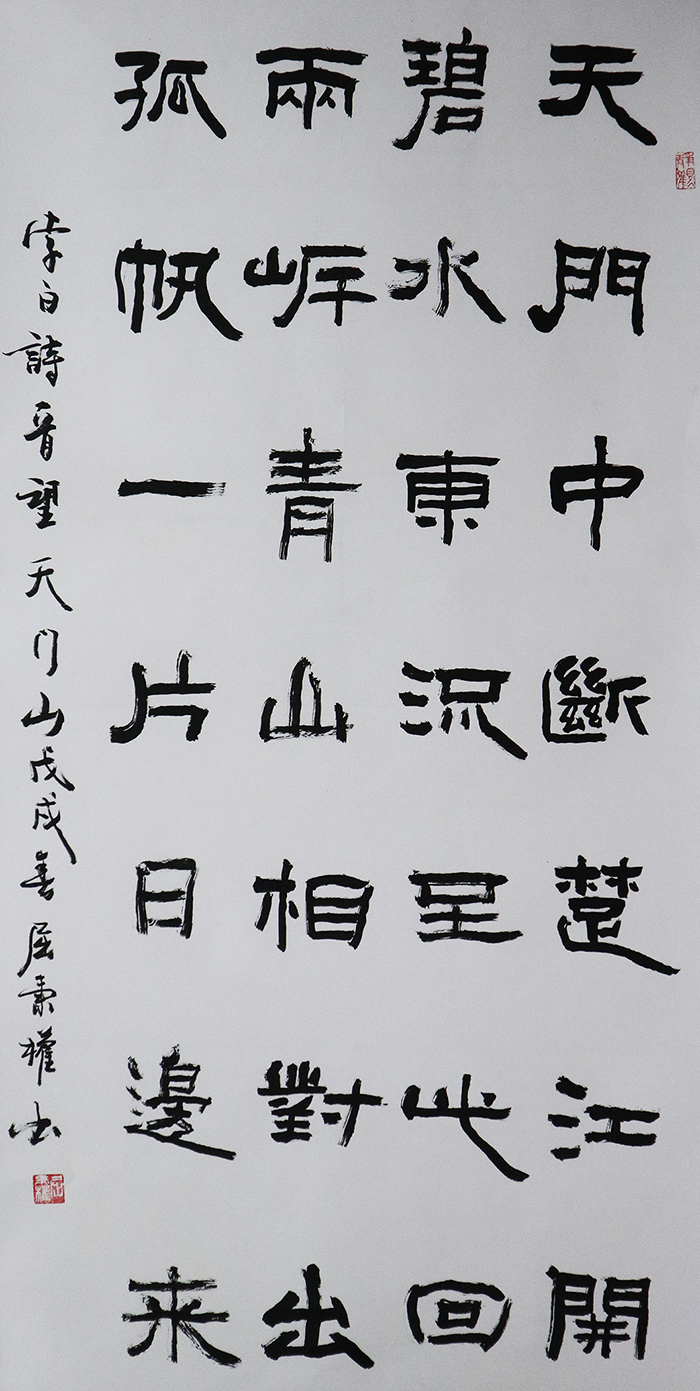 天門中斷楚江開
碧水東流至此回
兩岸青山相對出
孤帆一片日邊來
李白詩一首望天门山戊戌春屈秉權书